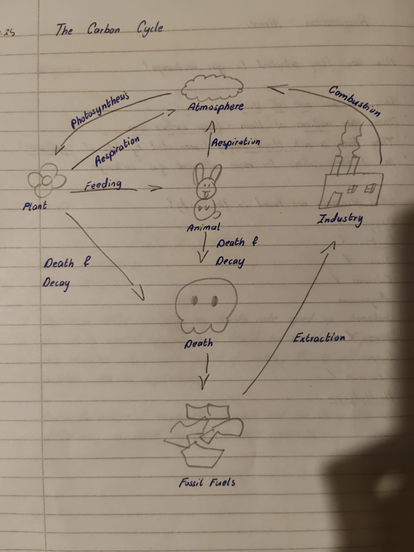 .25 The Carbon Cycle
Combustion
Photosyntheus
Atmosphere
Respiration
Respiration
Feeding
Plant
Animal
Industry
Death &
Decay
Death &
Decay
Death
Extraction
Fussil Fuels